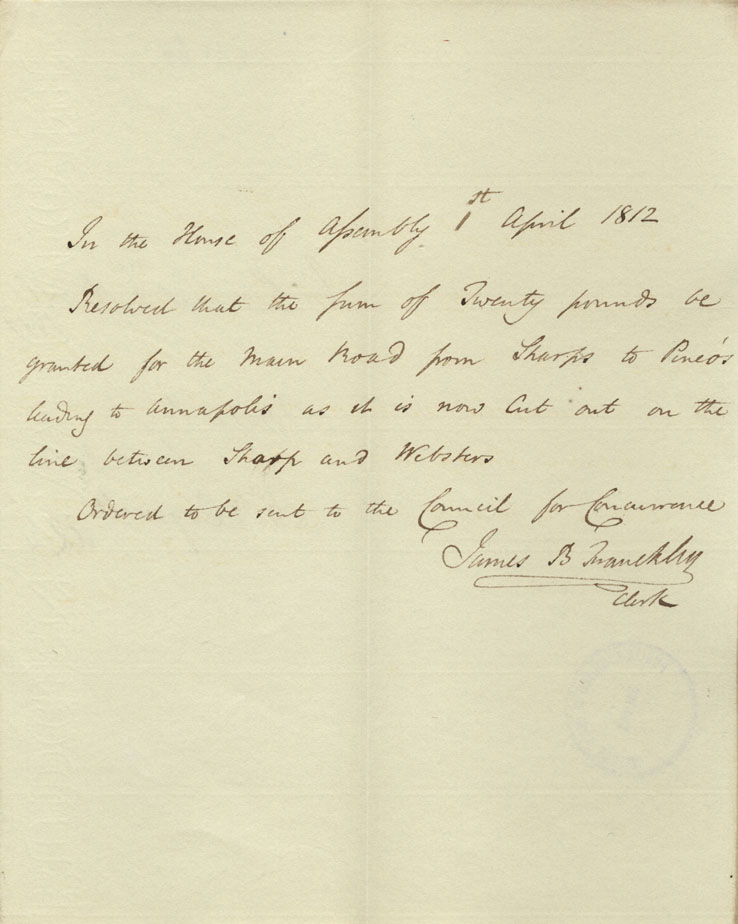 In the House of Assembly 1st April 1812
Resolved that the sum of Twenty pounds be
granted for the Main Road from Sharps to Pineo's
leading to Annapolis as it is now Cut out on the
line between Sharp and Websters
Ordered to be sent to the Council for Concurrence
James B Franckling
Clerk